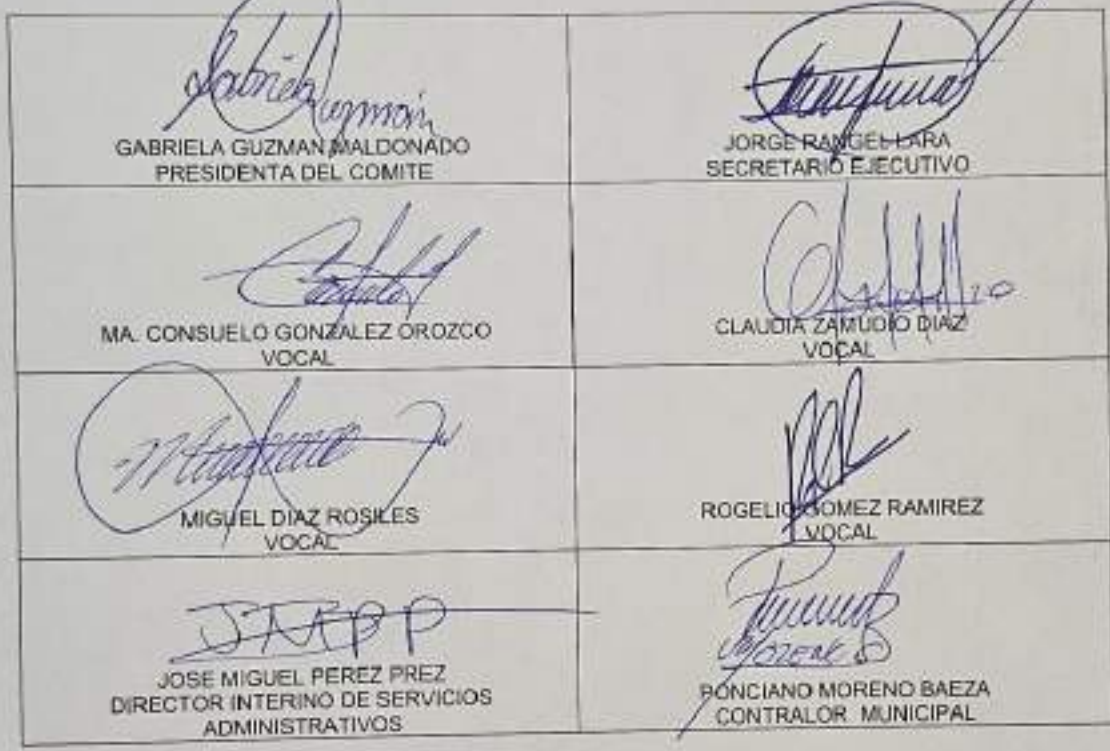 Gabriela Guzmán
GABRIELA GUZMAN MALDONADO
PRESIDENTA DEL COMITE
JORGE RANGEL LARA
SECRETARIO EJECUTIVO
MA. CONSUELO GONZALEZ OROZCO
VOCAL
CLAUDIA ZAMUDIO DIAZ
VOCAL
MIGUEL DIAZ ROSILES
VOCAL
ROGELIO GOMEZ RAMIREZ
VOCAL
JMPP
JOSE MIGUEL PEREZ PREZ
DIRECTOR INTERINO DE SERVICIOS
ADMINISTRATIVOS
PONCIANO MORENO BAEZA
CONTRALOR MUNICIPAL